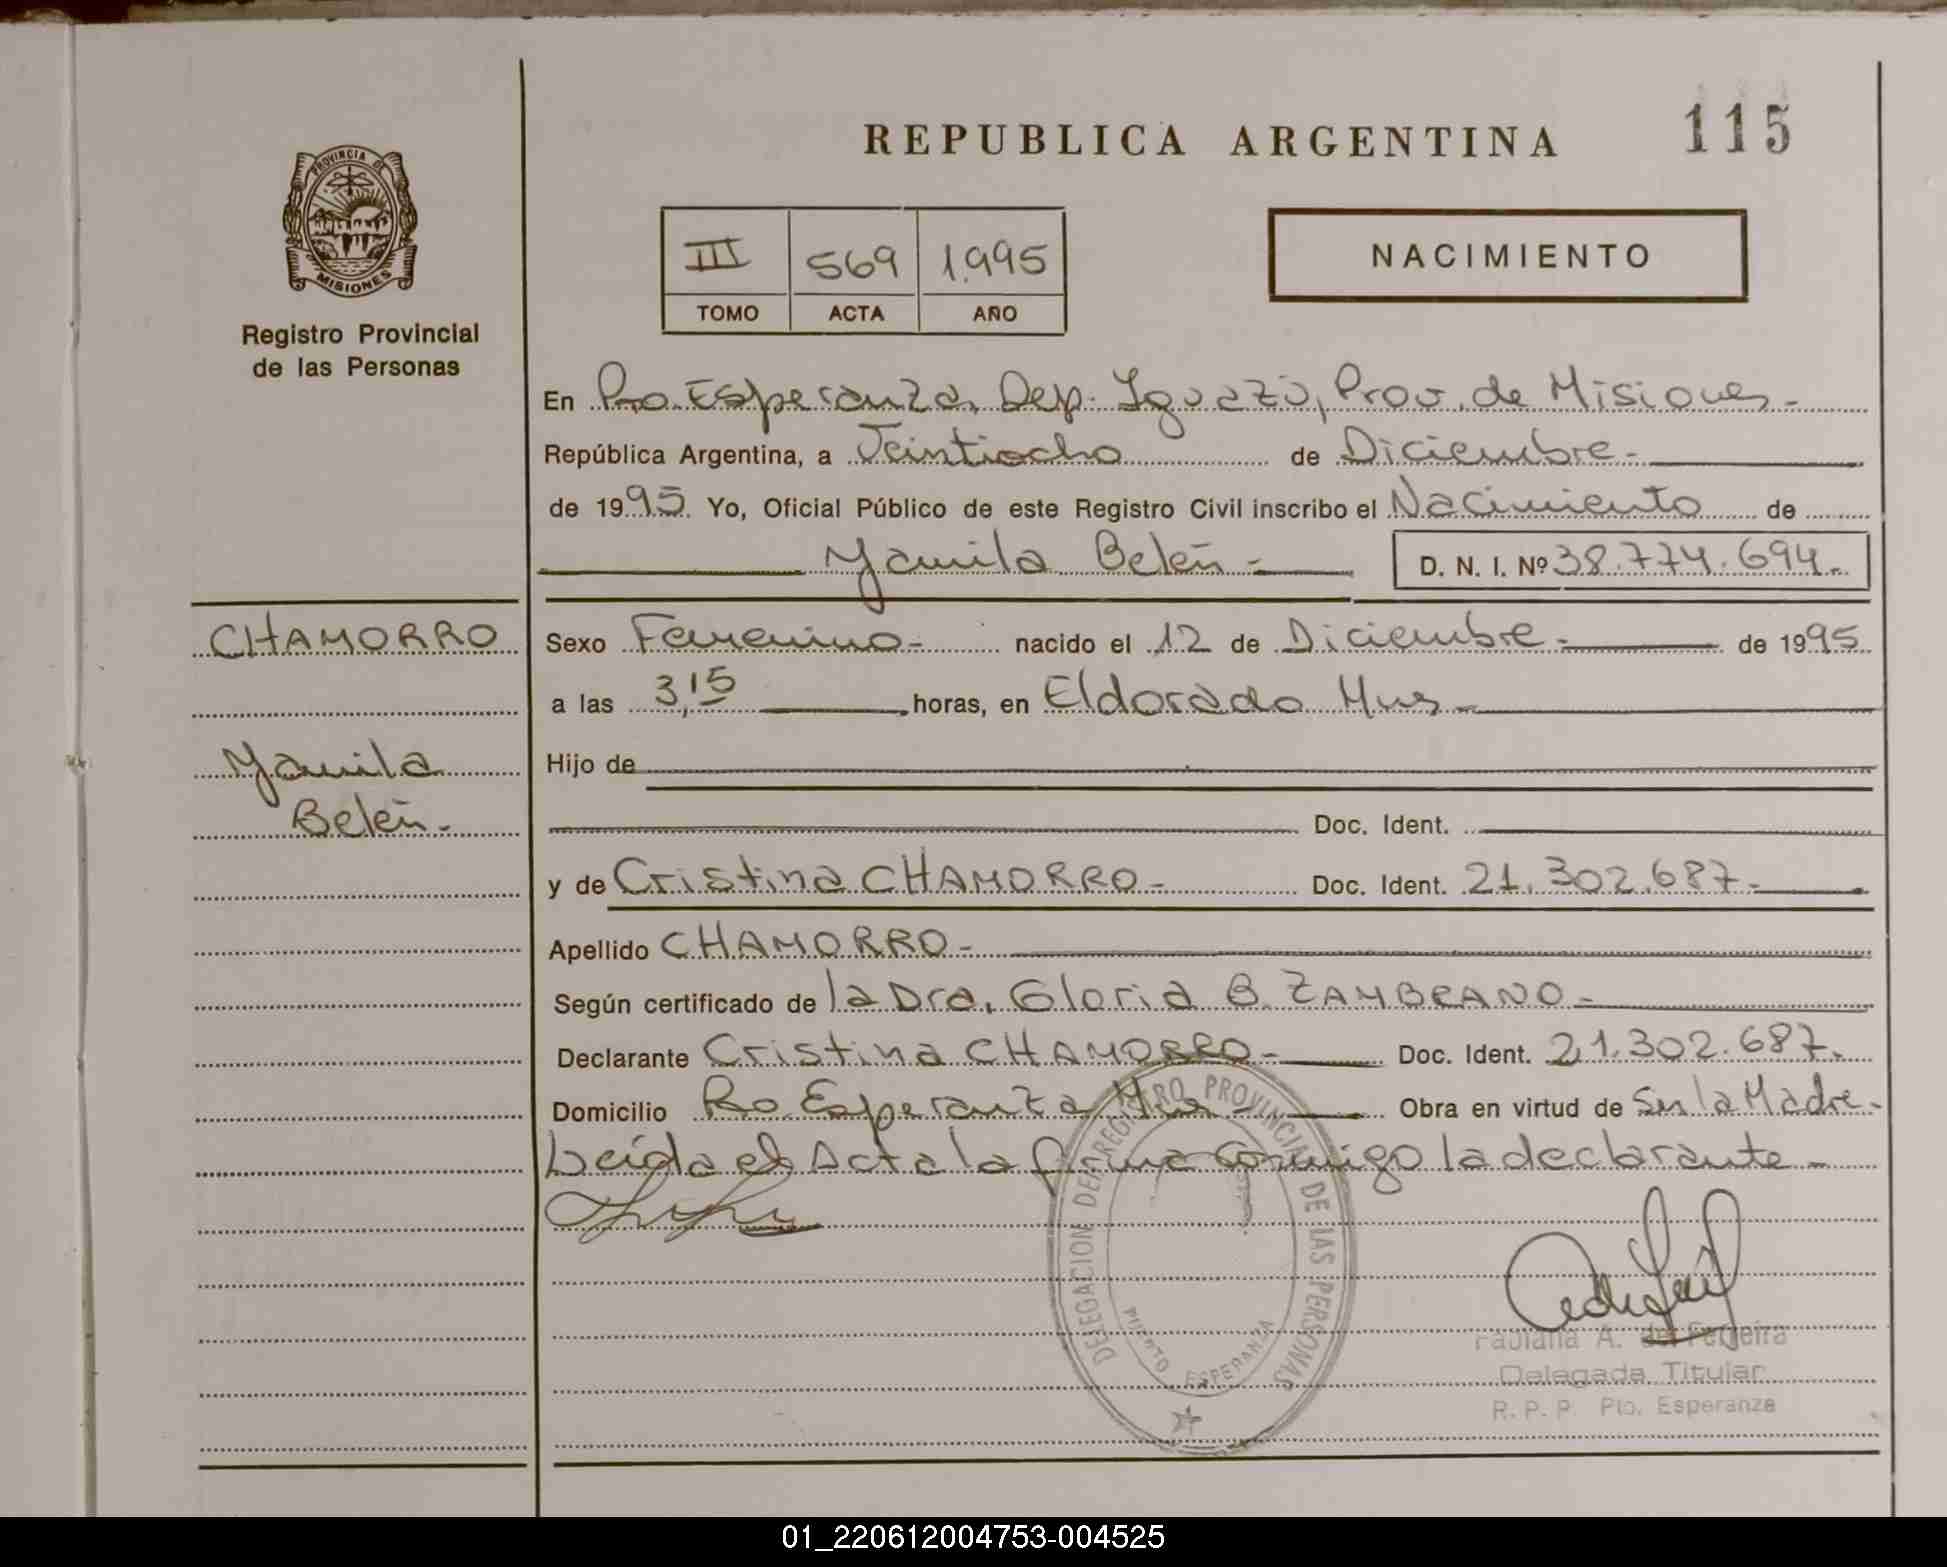 115
REPUBLICA ARGENTINA
PROVINCIA DE
MISIONES
Registro Provincial
de las Personas
III 569 1.995
TOMO ACTA AÑO
NACIMIENTO
En Pto. Esperanza, Dep. Iguazú, Prov. de Misiones-
República Argentina, a Veintiocho de Diciembre-
de 1995 Yo, Oficial Público de este Registro Civil inscribo el Nacimiento de
Yamila Belén- D. N. I. Nº 38.774.694-
CHAMORRO
Yamila
Belén-
Sexo Femenino- nacido el 12 de Diciembre- de 1995
a las 3,15 horas, en Eldorado Mns-
Hijo de
Doc. Ident.
y de Cristina CHAMORRO- Doc. Ident. 21.302.687-
Apellido CHAMORRO-
Según certificado de la Dra. Gloria B. ZAMBRANO-
Declarante Cristina CHAMORRO- Doc. Ident. 21.302.687-
Domicilio Pto. Esperanza Mns- Obra en virtud de Ser la Madre-
Leída el Acta la firma conmigo la declarante-
DELEGACION DEL REGISTRO PROVINCIAL DE LAS PERSONAS
PUERTO ESPERANZA
Fabiana A. de Ferreira
Delegada Titular
R. P. P. Pto. Esperanza
01_220612004753-004525